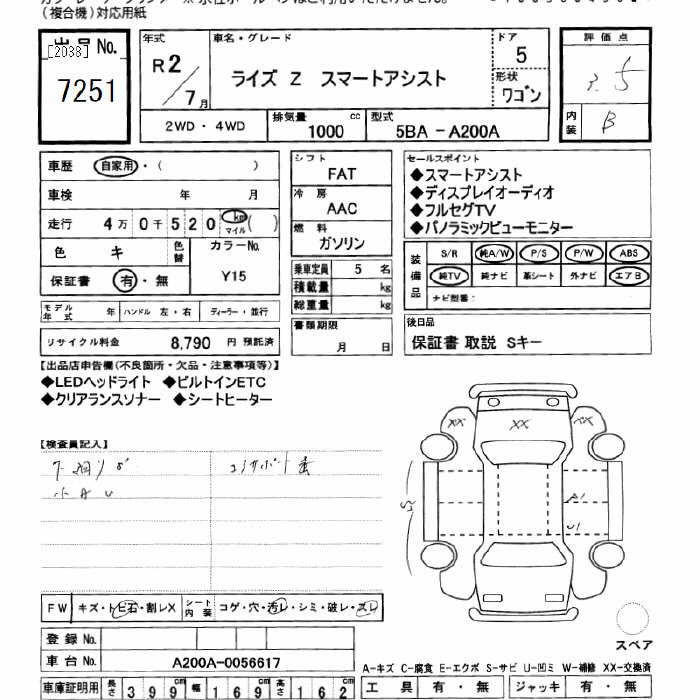 (複合機)対応用紙
出品No. 年式 車名・グレード ドア 評価点
[2038] R2 5
7251 /7月 ライズ Z スマートアシスト 形状 3.5
ワゴン
2WD・4WD 排気量 cc 型式 内装 B
1000 5BA-A200A
車歴 自家用・( )
車検 年 月
走行 4万0千520 km マイル( )
色 キ 色替 カラーNo.
保証書 有・無 Y15
モデル年式 年 ハンドル 左・右 ディーラー・並行
リサイクル料金 8,790 円 預託済
シフト
FAT
冷房
AAC
燃料
ガソリン
乗車定員 5 名
積載量 kg
総重量 kg
書類期限
月 日
セールスポイント
◆スマートアシスト
◆ディスプレイオーディオ
◆フルセグTV
◆パノラミックビューモニター
装備品 S/R 純A/W P/S P/W ABS
純TV 純ナビ 革シート 外ナビ エアB
ナビ型番:
後日品
保証書 取説 Sキー
【出品店申告欄(不良箇所・欠品・注意事項等)】
◆LEDヘッドライト ◆ビルトインETC
◆クリアランスソナー ◆シートヒーター
【検査員記入】
小AU
XX XX XX
A1
U1
FW キズ・トビ石・割レX シート内装 コゲ・穴・汚レ・シミ・破レ・スレ
登録No.
車台No. A200A-0056617
スペア
A-キズ C-腐食 E-エクボ S-サビ U-凹ミ W-補修 XX-交換済
車庫証明用 長さ 399cm 幅 169cm 高さ 162cm 工具 有・無 ジャッキ 有・無